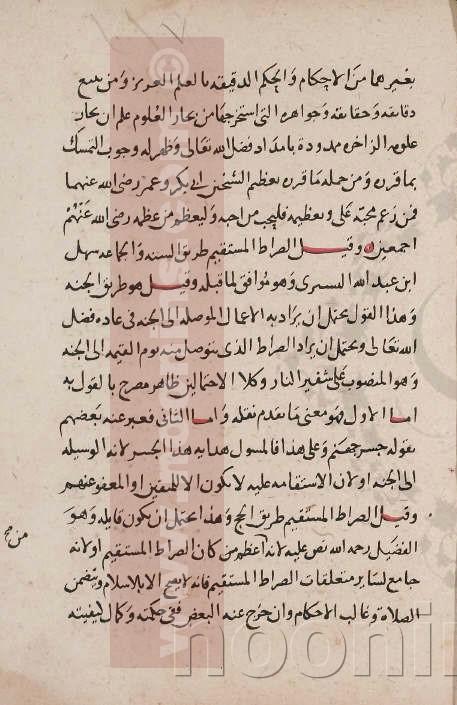 بغيرهما من الاحكام والحكم الدقيقه بالعلم العزيز ومن تتبع
دقائقه وحقائقه وجواهره التى استخرجها من بحار العلوم علم ان بحار
علومه الزاخره ممدودة بامداد فضل الله تعالى وظهر له وجوب التمسك
بما قرره ومن جمله ما قرره تعظيم الشيخين ابى بكر وعمر رضى الله عنهما
فمن زعم محبة على وتعظيمه فليحب من احبه وليعظم من عظمه رضى الله عنهم
اجمعين وقيل الصراط المستقيم طريق السنه والجماعه سهل
ابن عبد الله التسترى وهو موافق لما قبله وقيل هو طريق الجنه
وهذا القول يحتمل ان يراد به الاعمال الموصله الى الجنه فى عاده فضل
الله تعالى ويحتمل ان يراد الصراط الذى يتوصل منه يوم القيمه الى الجنه
وهو المنصوب على شفير النار وكلا الاحتمالين ظاهر مصرح بالقول به
اما الاول فهو معنى ما تقدم نقله واما الثانى فعبر عنه بعضهم
بقوله جسر جهنم وعلى هذا فالمسول هدايه هذا الجسر لانه الوسيله
الى الجنه او لان الاستقامه عليه لا يكون الا للمتقين او المعفو عنهم
وقيل الصراط المستقيم طريق الحج وهذا يحتمل ان يكون قايله وهو
الفضيل رحمه الله نص عليه لانه اعظم من كان الصراط المستقيم او لانه
جامع لساير متعلقات الصراط المستقيم فانه لا يصح الا بالاسلام ويتضمن
الصلاة وغالب الاحكام وان خرج عنه البعض ففى حكمته وكمال كيفيته
من صح
www.noonin
noonin